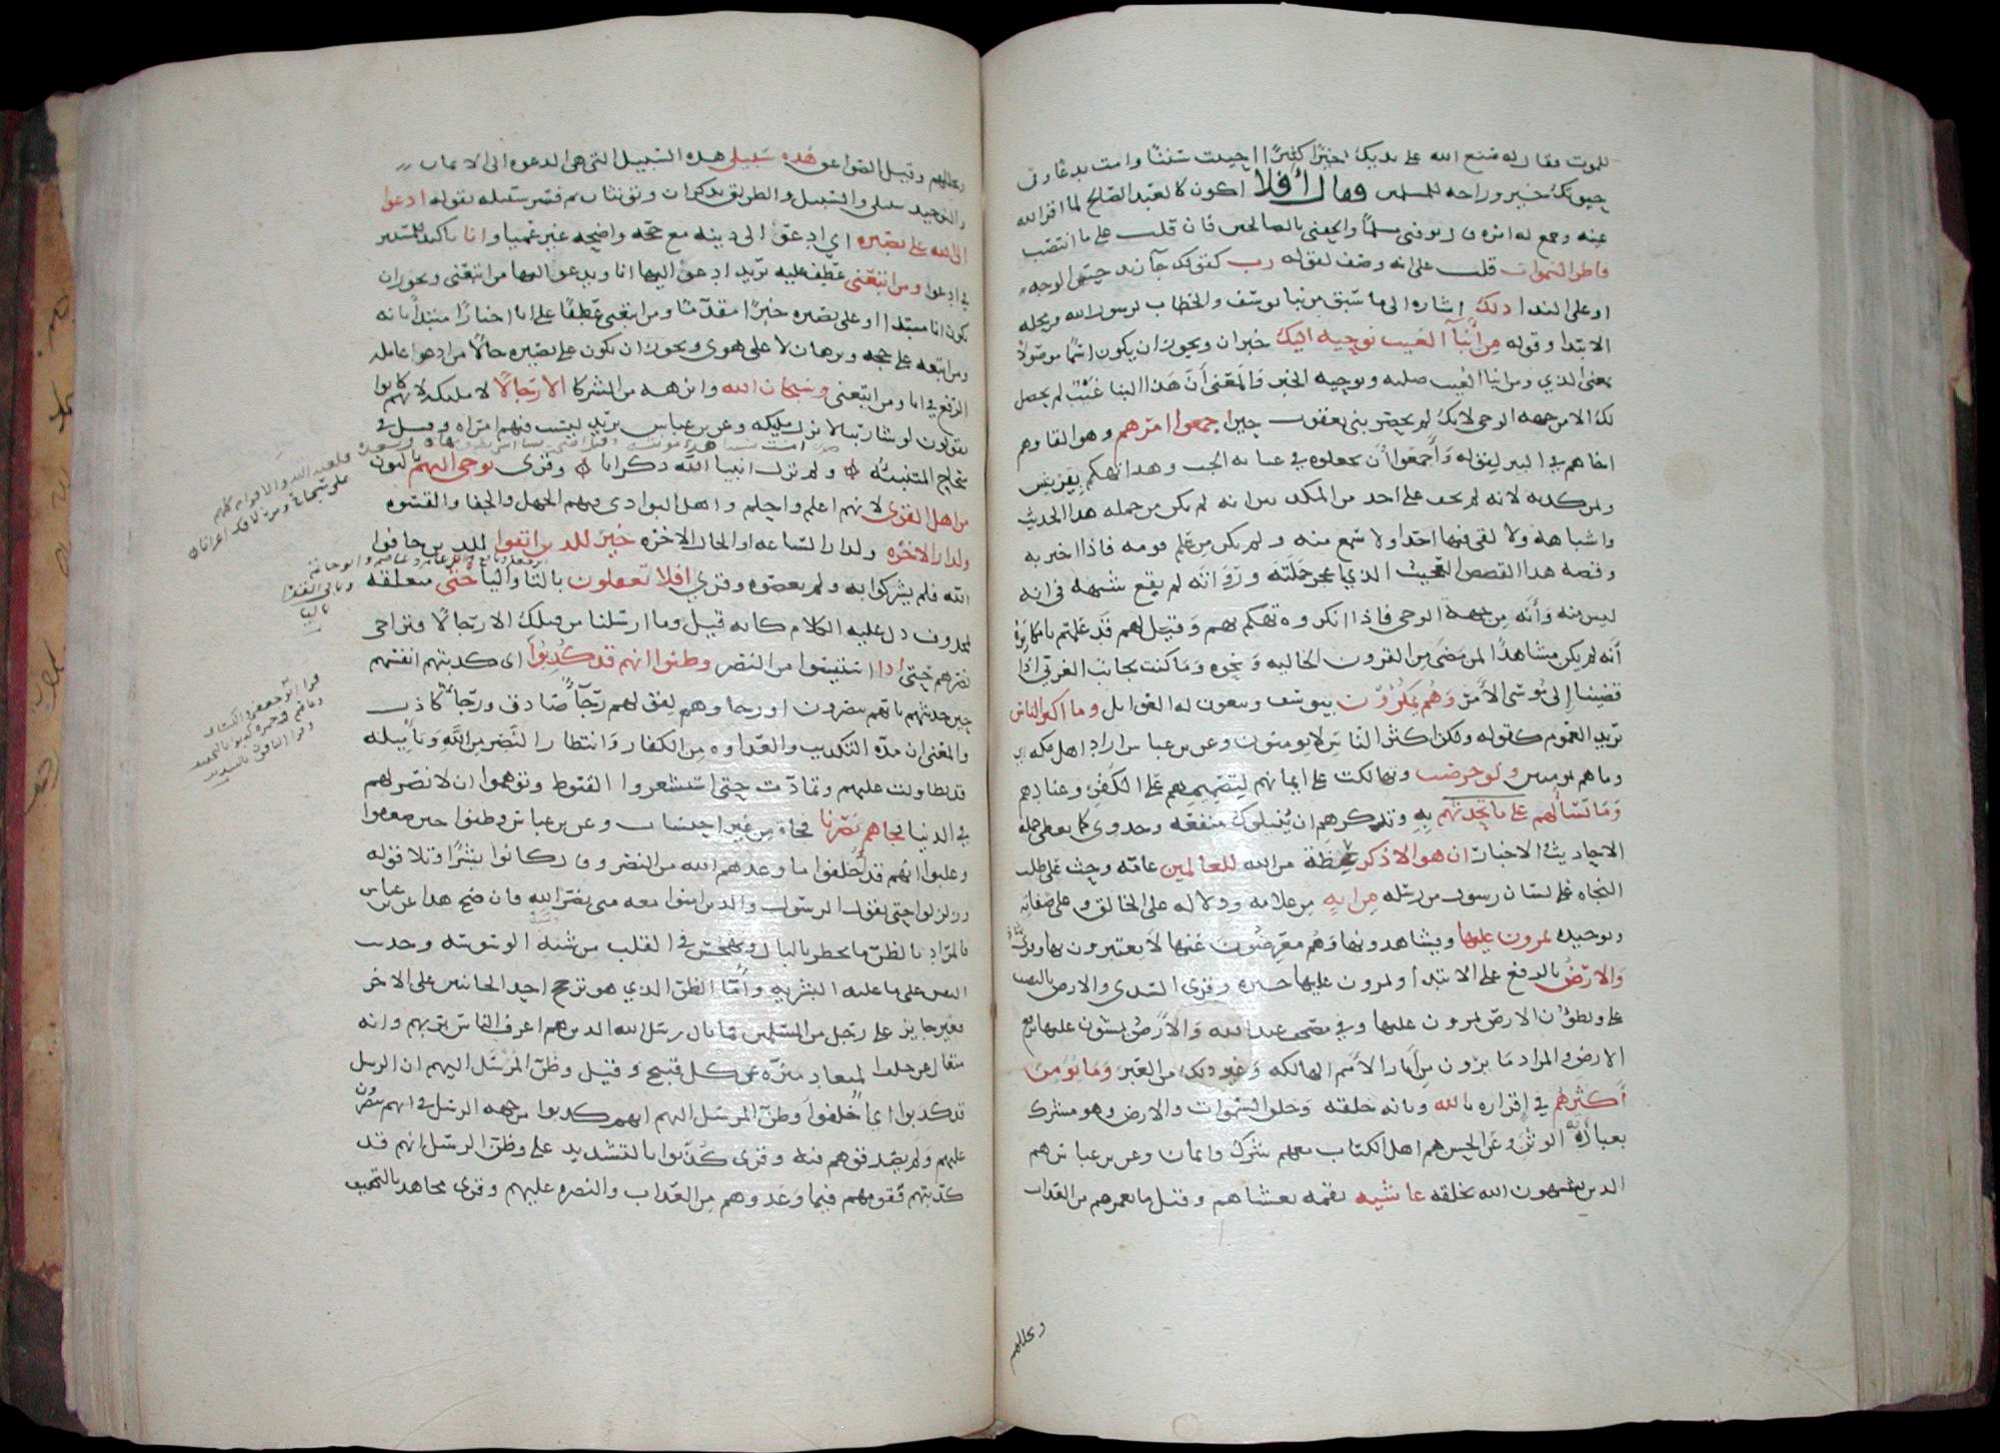 للموت فقال له صنع الله على يديك خيرا كثيرا احييت سننا وامت بدعا وفى
حيوتك خير وراحه للمسلمين فقال أفلا اكون كالعبد الصالح لما اقر الله
عينه وجمع له امره قال توفنى مسلما والحقنى بالصالحين فان قلت على ما انتصب
فاطر السموات قلت على انه وصف لقوله رب كقولك جآنى زيد حسن الوجه
او على الندا ذلك اشاره الى ما سبق من نبا يوسف والخطاب لرسول الله ومحله
الابتدا وقوله من أنبآ الغيب نوحيه اليك خبران ويجوز ان يكون اسما موصولا
بمعنى الذي ومن انبا الغيب صلته ونوحيه الخبر والمعنى أن هذا النبا غيب لم يحصل
لك الا من جهه الوحى لانك لم تحضر بنى يعقوب حين اجمعوا امرهم وهو القاوهم
اخاهم في البير لقوله وأجمعوا أن يجعلوه في غيابه الجب وهذا تهكم بقريش
وبمن كذبه لانه لم يخف على احد من المكذبين انه لم يكن من حمله هذا الحديث
واشباهه ولا لقى فيها احدا ولا سمع منه ولم يكن من علم قومه فاذا اخبر به
وقصه هذا القصص العجيب الذي اعجز حملته ورواته لم يقع شبهه فى انه
ليس منه وأنه من جهة الوحى فاذا انكروه تهكم بهم وقيل لهم قد علمتم يا مكابره
أنه لم يكن مشاهدا لمن مضى من القرون الخاليه ونحوه وما كنت بجانب الغربى اذ
قضينا إلى موسى الأمر وهم يمكرون بيوسف ويبغون له الغوايل وما اكثر الناس
يريد العموم كقوله ولكن اكثر الناس لا يومنون وعن بن عباس اراد اهل مكه اى
وما هم بمومنين ولو حرصت وتهالكت على ايمانهم لتصميمهم على الكفر وعنادهم
وما تسألهم على ما تحدثهم به وتذكرهم ان ينيلوك منفعه وجدوى كما يعطى حمله
الاحاديث والاخبار ان هو الا ذكر عظة من الله للعالمين عامه وحث على طلب
النجاه على لسان رسول من رسله من ايه من علامه ودلاله على الخالق وعلى صفاته
وتوحيده يمرون عليها ويشاهدونها وهم معرضون عنها لا يعتبرون بها وقرئ
والارض بالرفع على الابتدا ويمرون عليها خبره وقرى السدى والارض بالنصب
على ويطؤن الارض يمرون عليها وفى مصحف عبد الله والأرض يمشون عليها برفع
الارض والمراد ما يرون من آثار الأمم الهالكه وغير ذلك من العبر وما يؤمن
أكثرهم في إقراره بالله وبانه خلقه وخلق السموات والارض الا وهو مشرك
بعبادته الوثن وعن الحسن هم اهل الكتاب معهم شرك وايمان وعن بن عباس هم
الذين يشبهون الله بخلقه غاشيه نقمه تغشاهم وقيل ما يغمرهم من العذاب
ويجللهم
ويجللهم وقيل الصواعق هذه سبيلى هذه السبيل التى هى الدعوه الى الايمان
والتوحيد سبيلى والسبيل والطريق يذكران ويونثان ثم فسر سبيله بقوله ادعو
الى الله على بصيره اي ادعو الى دينه مع حجه واضحه غير عميا وانا تاكيد للمستتر
في ادعوا ومن اتبعنى عطف عليه يريد ادعو اليها انا ويدعو اليها من اتبعنى ويجوز ان
يكون انا مبتدا او على بصيره خبرا مقدما ومن اتبعنى عطفا على انا اخبارا مبتدأ بانه
ومن اتبعه على حجه وبرهان لا على هوى ويجوز ان يكون على بصيره حالا من ادعوا عامله
الرفع في انا ومن اتبعنى وسبحان الله وانزهه من الشركا الا رجالا لا مليكه لانهم كانوا
يقولون لو شا ربنا لانزل مليكه وعن بن عباس يريد ليست فيهم امراه وقيل فى
سجاح المتنبئه ولم تزل انبيا الله ذكرانا وقرى نوحى اليهم بالنون
من اهل القرى لانهم اعلم واحلم واهل البوادى فيهم الجهل والجفا والقسوه
ولدار الاخره ولدار الساعه او الحال الاخره خير للذين اتقوا للذين خافوا
الله فلم يشركوا به ولم يعصوه وقرى افلا تعقلون بالتا واليا حتى متعلقه
بمحذوف دل عليه الكلام كانه قيل وما ارسلنا من قبلك الا رجالا فتراخى
نصرهم حتى اذا استيئسوا من النصر وظنوا انهم قد كذبوا اى كذبتهم انفسهم
حين حدثتهم بانهم ينصرون او رجاوهم لقولهم رجآ صادق ورجا كاذب
والمعنى ان مده التكذيب والعداوه من الكفار وانتظار النصر من الله وتأميله
قد تطاولت عليهم وتمادت حتى استشعروا القنوط وتوهموا ان لا نصر لهم
في الدنيا فجاهم نصرنا فجاة من غير احتساب وعن بن عباس وظنوا حين ضعفوا
وغلبوا انهم قد أخلفوا ما وعدهم الله من النصر وقال كانوا بشرا وتلا قوله
وزلزلوا حتى يقول الرسول والذين امنوا معه متى نصر الله فان صح هذا عن بن عباس
فالمراد بالظن ما يخطر بالبال ويهجس في القلب من شبه الوسوسه وحديث
النفس على ما عليه البشريه وأما الظن الذي هو ترجح احد الجانبين على الاخر
فغير جايز على رجل من المسلمين فما بال رسل الله الذين هم اعرف الناس بربهم وانه
متعال عن خلف الميعاد منزه عن كل قبيح وقيل وظن المرسل اليهم ان الرسل
قد كذبوا اي أخلفوا وظن المرسل اليهم انهم كذبوا من جهه الرسل فى انهم ينصرون
عليهم ولم يصدقوهم فيه وقرى كذبوا بالتشديد على وظن الرسل انهم قد
كذبتهم قومهم فيما وعدوهم من العذاب والنصره عليهم وقرى مجاهد بالتخفيف